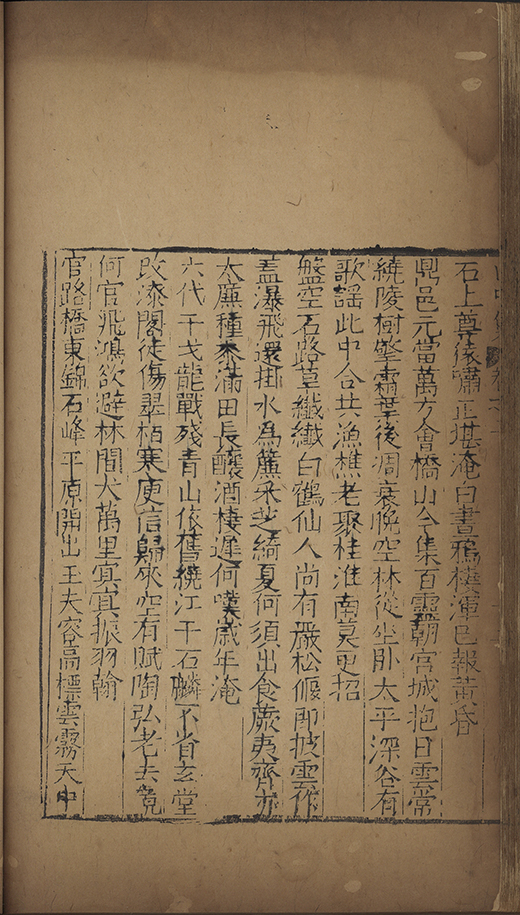 石上尊猿嘯正堪淹白晝鴉棲渾已報黃昏
鼎邑元當萬方會橋山今集百靈朝宮城抱日雲常
繞陵樹擎霜葉後凋衰晚空林從坐臥太平深谷有
歌謠此中合共漁樵老聚桂淮南莫更招
盤空石路草纖纖白鶴仙人尚有巖松偃即披雲作
蓋瀑飛還掛水為簾采芝綺夏何須出食蕨夷齊亦
太廉種秫滿田長釀酒棲遲何嘆歲年淹
六代干戈龍戰殘青山依舊繞江干石麟不省玄堂
改漆閣徒傷翠栢寒庾信歸來空有賦陶弘老去竟
何官飛鴻欲避林間犬萬里冥冥振羽翰
官路橋東錦石峰平原開出玉夫容高標雲霧天中